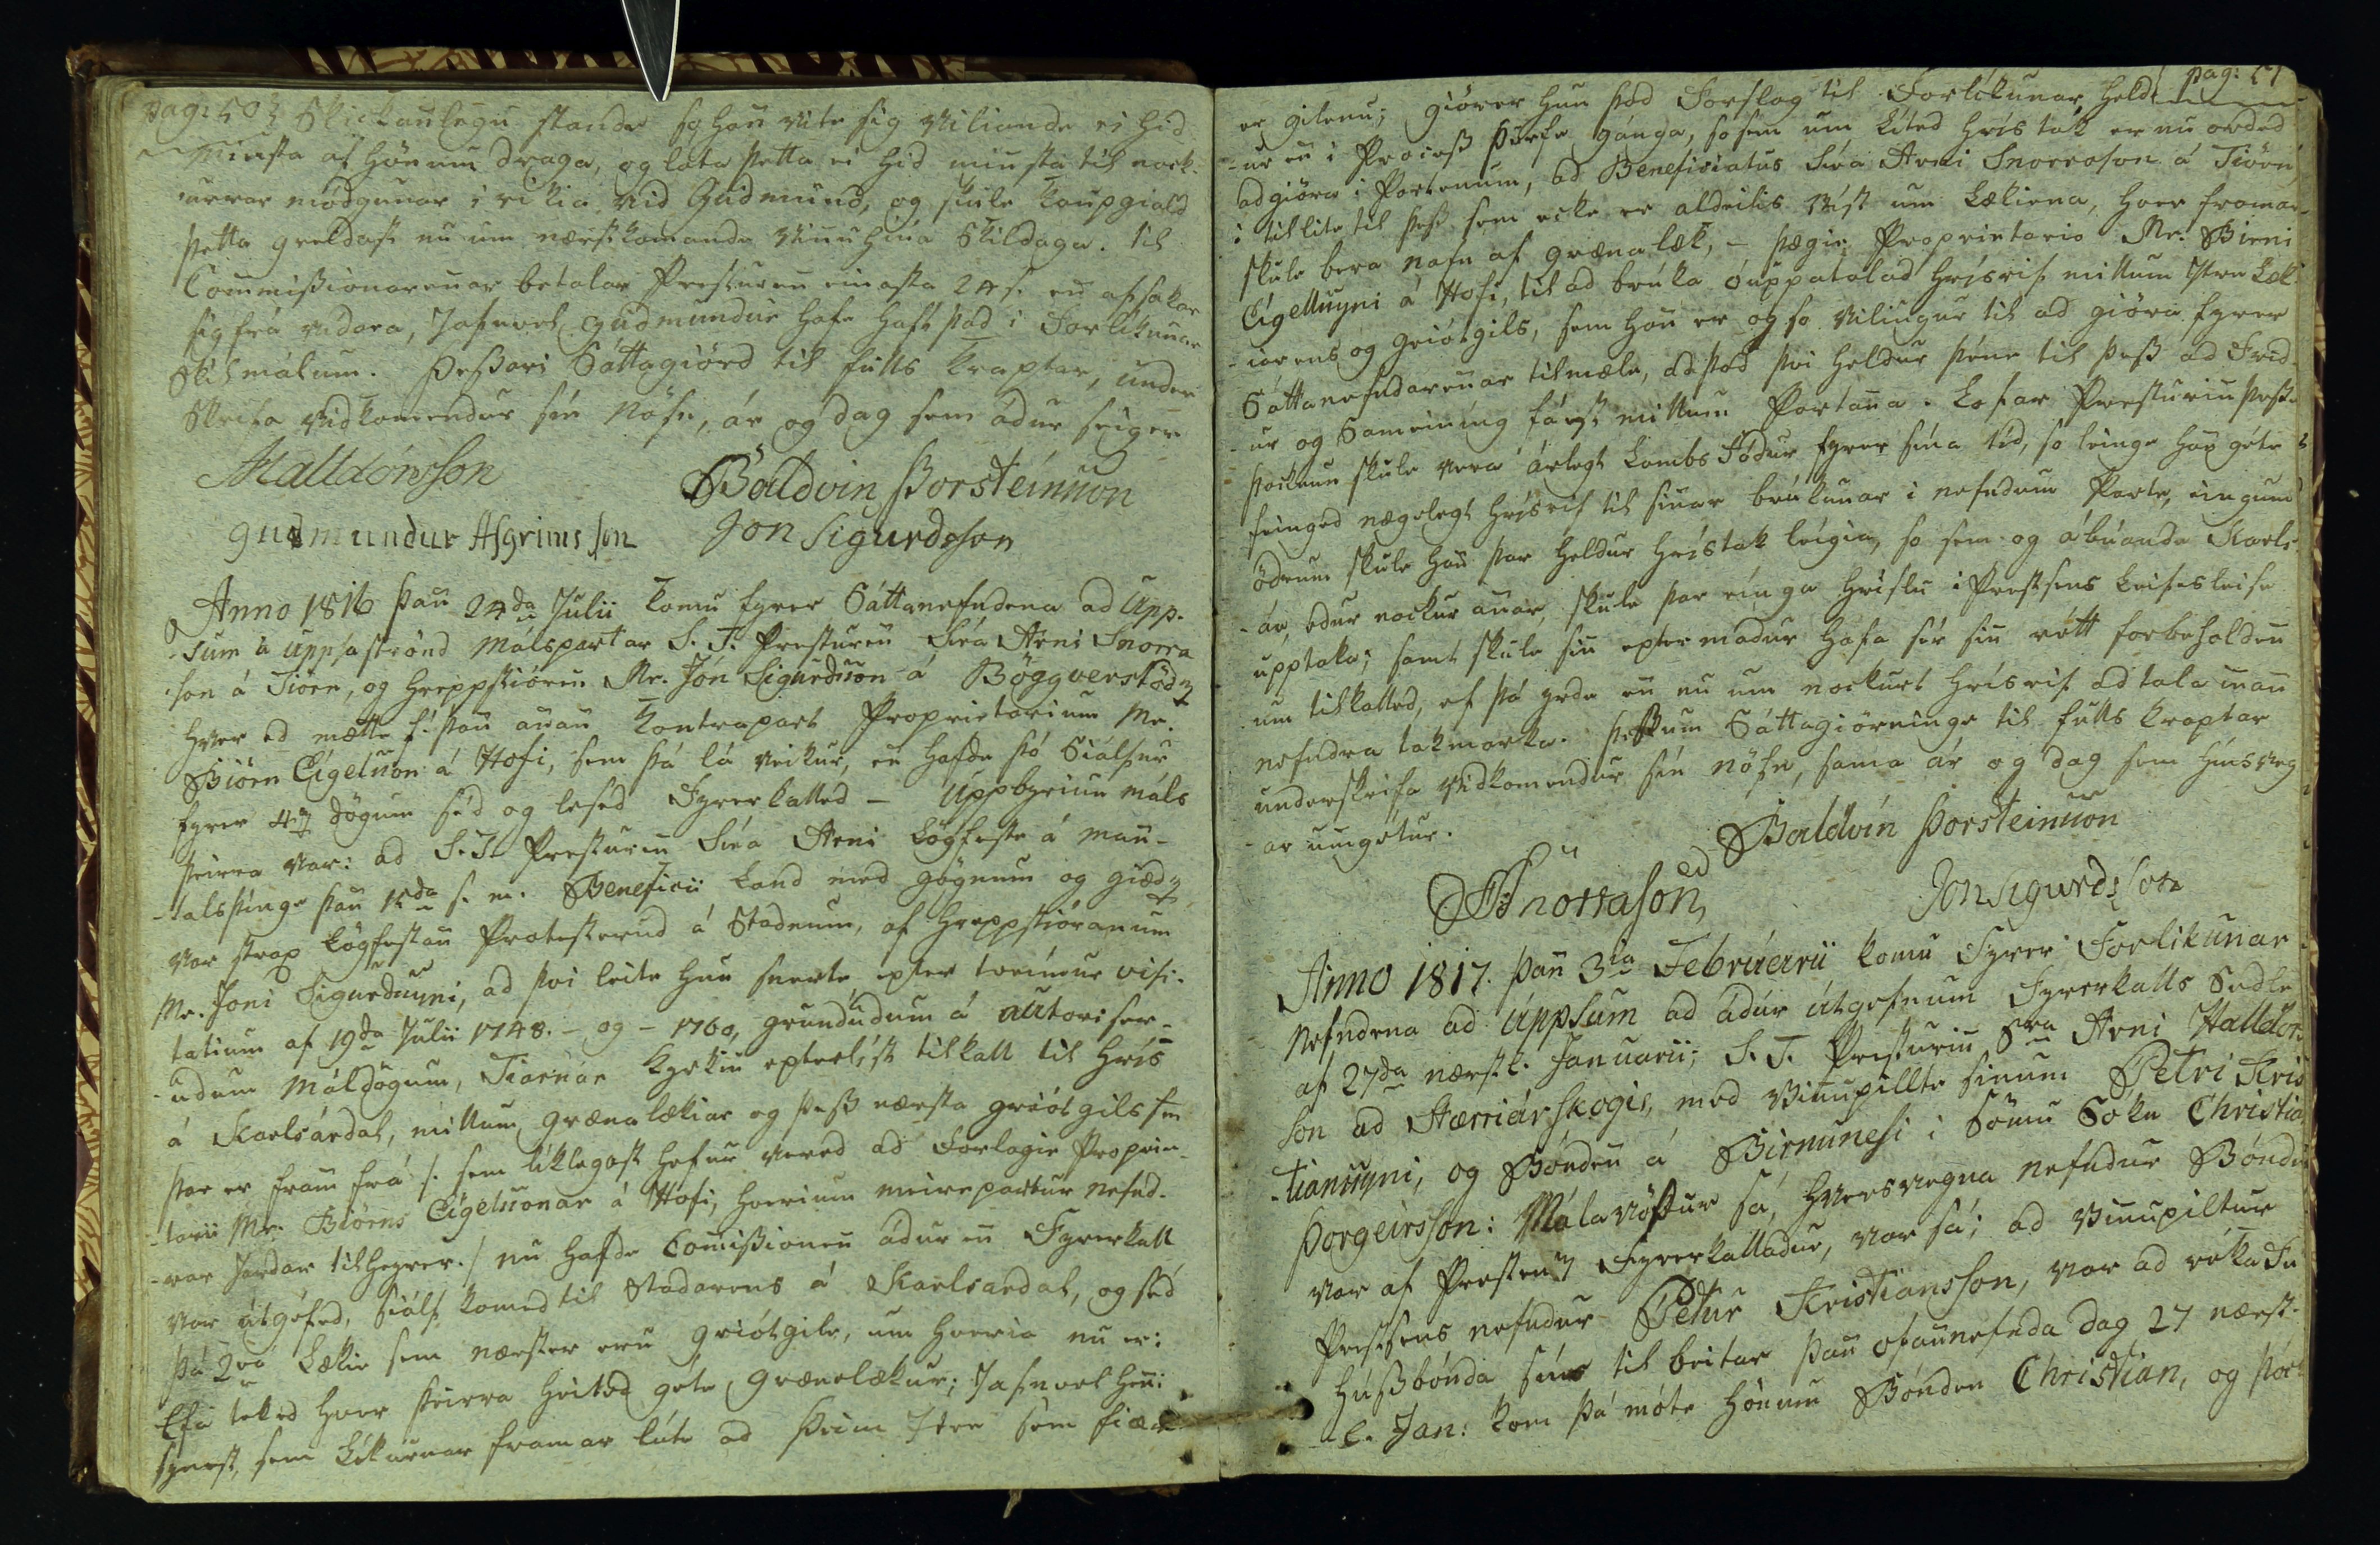 pag: 50 Skickanlegu standa so han vite sig viliande ei hid
Minsta af hönum draga, og lata þetta ei hid minsta til nock-
urrar módgunar í vid Gudmund, og skule kaupgiald
þetta greidast nu um næstkomande Vinuhiúa Skildaga. til
Commissionarennar betalar Presturen einasta 24 s. en afsakar
sig frá vidara, Jafnvel Gudmundur hafe haft þad i Forlikunar
Skilmálum. Þessari Sáttagiörd til fulls kraptar, under
Skrifa vidkomendur sín Nöfn, ár og dag sem ádur seiger
AHalldórsson
Baldvin Þorsteinsson
gudmundur Asgrims son Jon Sigurdsson
Anno 1816 þan 24da Julii komu fyrer Sáttanefndena ad Upp-
sum á Uppsaströnd Málspartar S. T. Presturen Síra Arni Snorra
son á Tiörn, og hreppstióren Mr. Jón Sigurdsson á Böggverstöd
hver ad mætte f. þan anan Kontrapart Proprietarium Mr.
Biörn Eigelsson á Hofi, sem þá lá veikur, en hafde þó Siálfur
fyrer 4 dögum séd og lesed Fyrerkalled – Uppbyriun máls
þeirra var: ad S. T. Presturen Síra Arni Lögfeste á man-
talsþinge þan 15da s. m. Beneficii Land med gögnum og giæd
var strax Lögfestan Protesterud á Stadnum, af hreppstióranum
Mr. Joni Sigurdssyni, ad því leite hun snerte, epter tveimur visi-
tatium af 19da Julii 1748. – og – 1760, grundudum á autoriser-
udum Máldögum, Tiarnar kyrkiu tilkall til hrís
á Karlsárdal, millum grænalækiar og þess næsta griótgils sem
þar er fram frá /. sem líklegast hefur vered ad Forlagie Proprie-
tarii Mr. Biörns Eigelssonar á Hofi, hverium meirepartur nefnd-
rar Jardar tilheyrer. / nu hafde Comissionen ádur en Fyrerkall
var útgefed, siálf komed til Stadarens á Karlsardal, og séd
þá 2vo Lækie sem næster eru griótgile, um hveria nu er:
Efa teked hver þeirra heitad géte Grænelækur; Jafnvel heni
synest, sem Líkurnar framar lúte ad þeim Ytre sem fiær
pag: 51
er gilenu; giörer hun þad Forslag til Forlíkunar, held
ur en i Process þurfe gánga, sosem um Lited hrístak er nu orded
adgiöra í Partenum, ad Beneficiatus Síra Arni Snorrason á Tiörn,
i tillite til þess sem ecke er aldeilis Víst um Lækiena, hver framar
skule bera nafn af grænalæk, – þægie Proprietario Mr. Birni
Eigelssyni á Hofi, til ad brúka óuppatalad hrísrif millum Ytre Læk-
iarens og Griótgils, sem han er og so viliugur til ad giöra fyrer
Sáttanefndarennar tilmæle, ad þad því heldur þéne til þess ad Frid-
ur og Sameining fáest millum Partana. Lofar Presturin þess
þocknun skule vera árlegt Lambs Fódur fyrer sína tíd, so leinge han géte
feinged nægelegt hrísrif til sinar brúkunar i nefndum Parte, eingum
ödrum skule han þar heldur hrístak leigia, so sem og ábúande Karls-
ár, edur nockur anar, skule þar einga hríslu i Prestsens Leifisleise
upptaka; samt skule sin eptermadur hafa sér sin rétt forbeholden
um tilkalled, ef þá yrde en nu um nockurt hrísrif ad tala inan
nefndra takmarka. þessum Sáttagiörninge til fulls kraptar
underskrifa vidkomendur sín nöfn, sama ár og dag sem hinsveg
ar umgétur.
Baldvin Þorsteinsson
ASnorrason
Jon Sigurdsson
Anno 1817. þan 3ia Februarii komu Fyrer Forlikunar
Nefndena ad Uppsum ad ádur útgefnum Fyrerkalls Sedle
af 27da næstl. Januarii; S. T. Presturin Sra Arni Halldórs
son ad Stærriárskogie, med Vinupillte sinum Petri Kris
tianssyni, og Bónden á Birnunesi i sömu Sokn Christian
Þorgeirsson: Málavöxtur sá, hversvegna nefndur Bónde
var af Presten Fyrerkalladur, var sá; ad Vinupiltur
Prestsens nefndur Petur Kristiansson, var ad réka Fé
húsbónda síns til beitar þan ofannefnda dag 27 næst-
l. Jan: kom þá móte hönum Bónden Christian, og þót